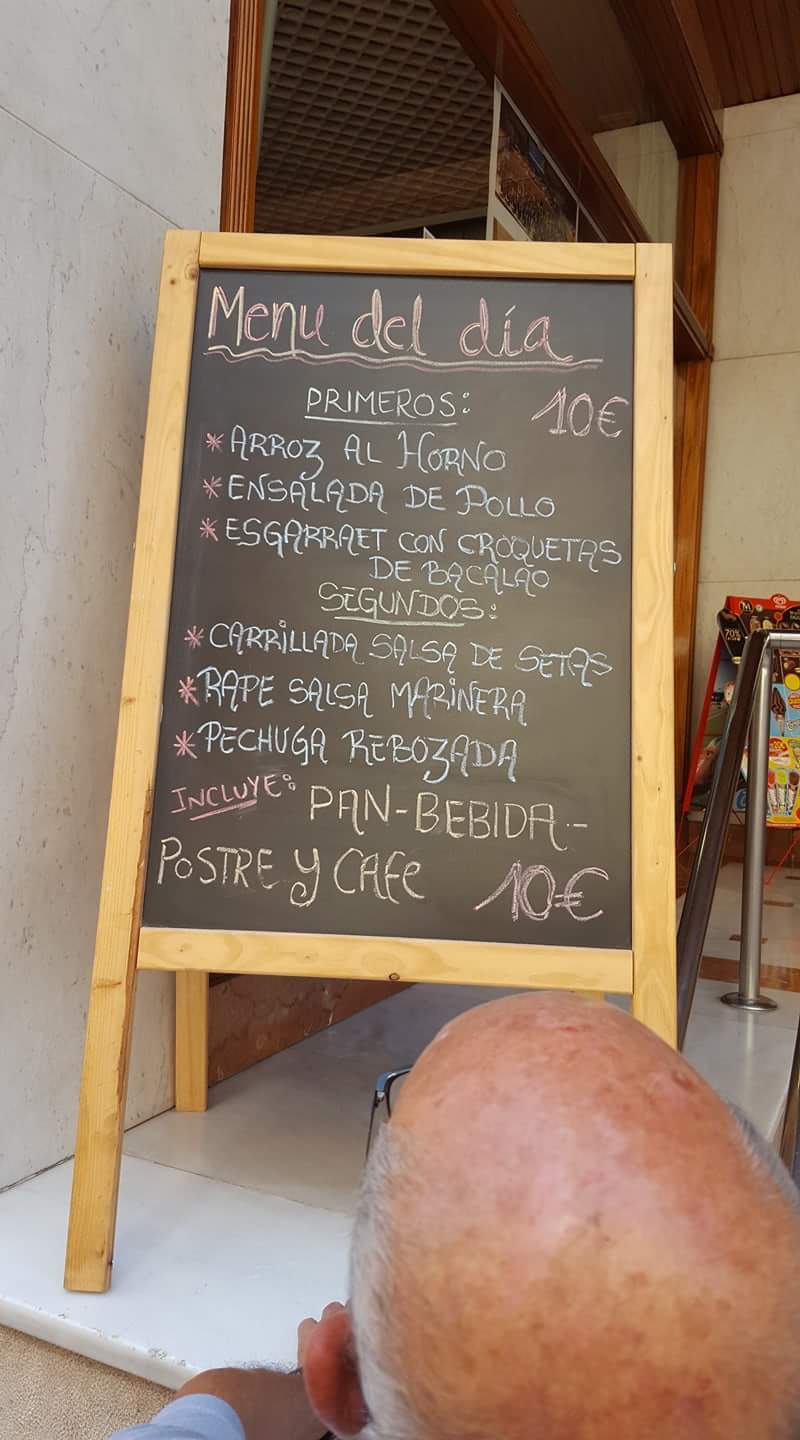 Menu del día
PRIMEROS: 10€
* ARROZ AL HORNO
* ENSALADA DE POLLO
* ESGARRAET CON CROQUETAS
DE BACALAO
SEGUNDOS:
* CARRILLADA SALSA DE SETAS
* RAPE SALSA MARINERA
* PECHUGA REBOZADA
INCLUYE: PAN-BEBIDA.-
POSTRE Y CAFE 10€